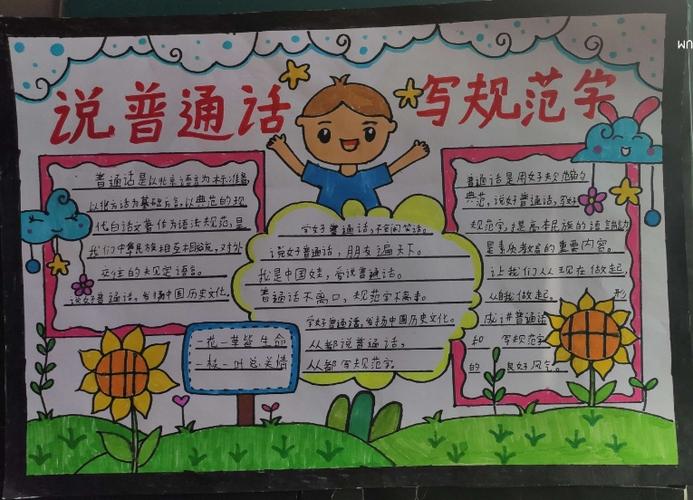 说普通话
写规范字
普通话是以北京语音为标准音
以北方话为基础方言,以典范的现
代白话文著作为语法规范,是
我们中华民族相互相交流,对外
交往的规定语言。
说好普通话,发扬中国历史文化。
学好普通话,不闹笑话。
说好普通话,朋友遍天下。
我是中国娃,爱说普通话。
普通话不离口,规范字不离手。
学好普通话,发扬中国历史文化。
人人都说普通话,
人人都写规范字。
一花一草皆生命
一枝一叶总关情
普通话是用好规范的
典范,说好普通话,写好
规范字,提高本民族的语言能力
是素质教育的重要内容。
让我们从现在做起,
从自我做起, 形
成讲普通话
和 写规范字
的 良好风气。